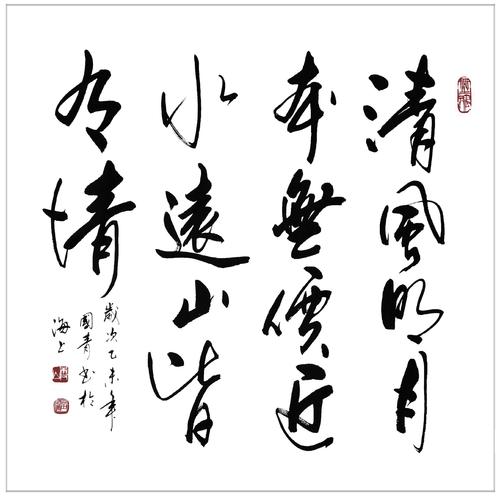 清風明月
本無價近
水遠山皆
有情
歲次乙未年
國青書於
海上